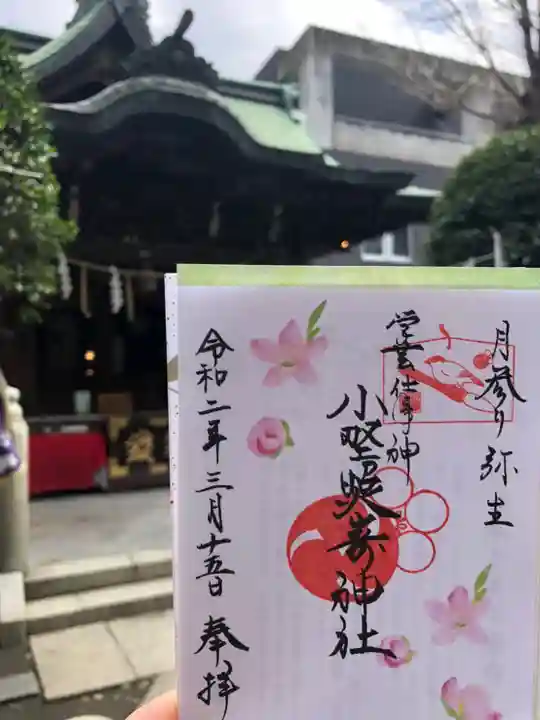 月参り弥生
学芸仕事神
小野照崎神社
令和二年三月十五日 奉拝